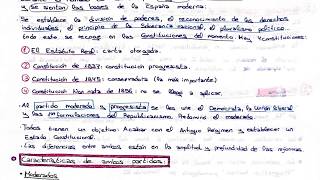 y se sientan las bases de la España moderna.
Se establece la división de poderes, el reconocimiento de los derechos
individuales, el principio de la soberanía nacional, el pluralismo político...
Todo esto se recoge en las Constituciones del momento. Hay 4 constituciones:
① El Estatuto Real: carta otorgada.
② Constitución de 1837: constitución progresista.
③ Constitución de 1845: conservadura (la más importante)
④ Constitución Non nata de 1856: no se llegó a aplicar.
• Al partido moderado y progresista se les une el Demócrata, la Unión liberal
y las formulaciones del Republicanismo. Predominó el moderado.
Todos tienen un objetivo: Acabar con el Antiguo Régimen y establecer un
Estado Constitucional.
Las diferencias entre ambos están en la amplitud y profundidad de las reformas.
Características de ambos partidos:
• Moderados